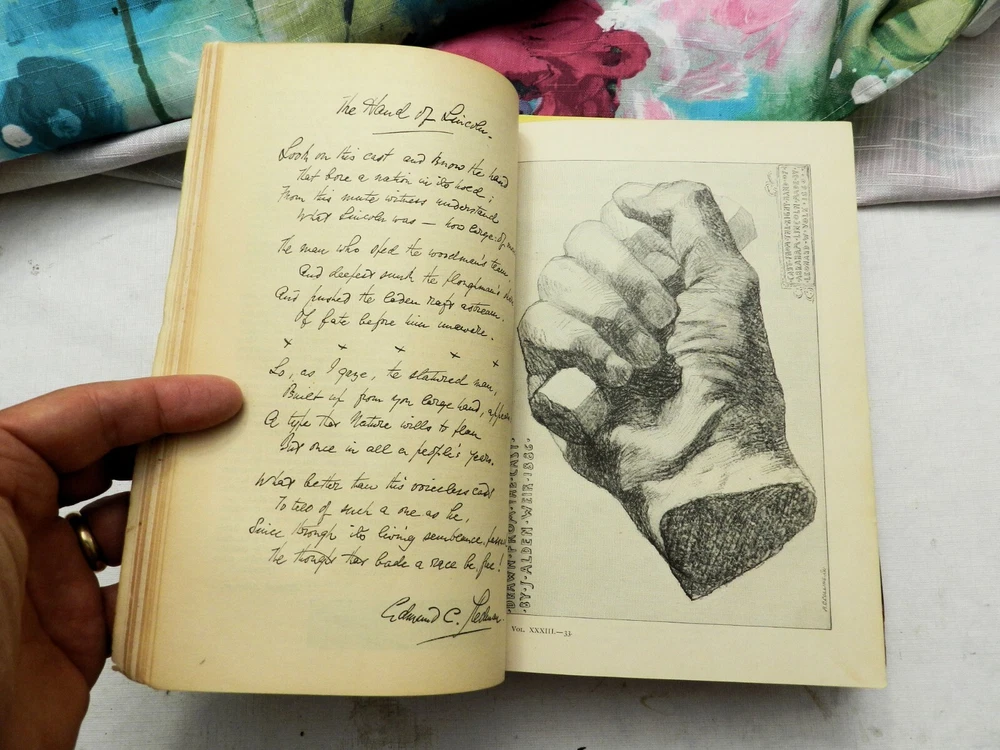 The Hand of Lincoln.
Look on this cast and know the hand
That bore a nation in its hold;
From this mute witness understand
What Lincoln was — how large of
The man who sped the woodman's team
And deepest sunk the ploughman's
And pushed the laden raft astream,
Of fate before him unaware.
x x x x x
Lo, as I gaze, the statured man,
Built up from yon large hand, appears
A type that Nature wills to plan
But once in all a people's years.
What better than this voiceless cast
To tell of such a one as he,
Since through its living semblance passed
The thought that bade a race be free!
Edmund C. Stedman.
CAST·FROM·THE·RIGHT·HAND·OF
ABRAHAM·LINCOLN·MADE·BY
LEONARD·W·VOLK·1860
DRAWN·FROM·THE·CAST·
BY·J·ALDEN·WEIR·1886·
VOL. XXXIII.—33.